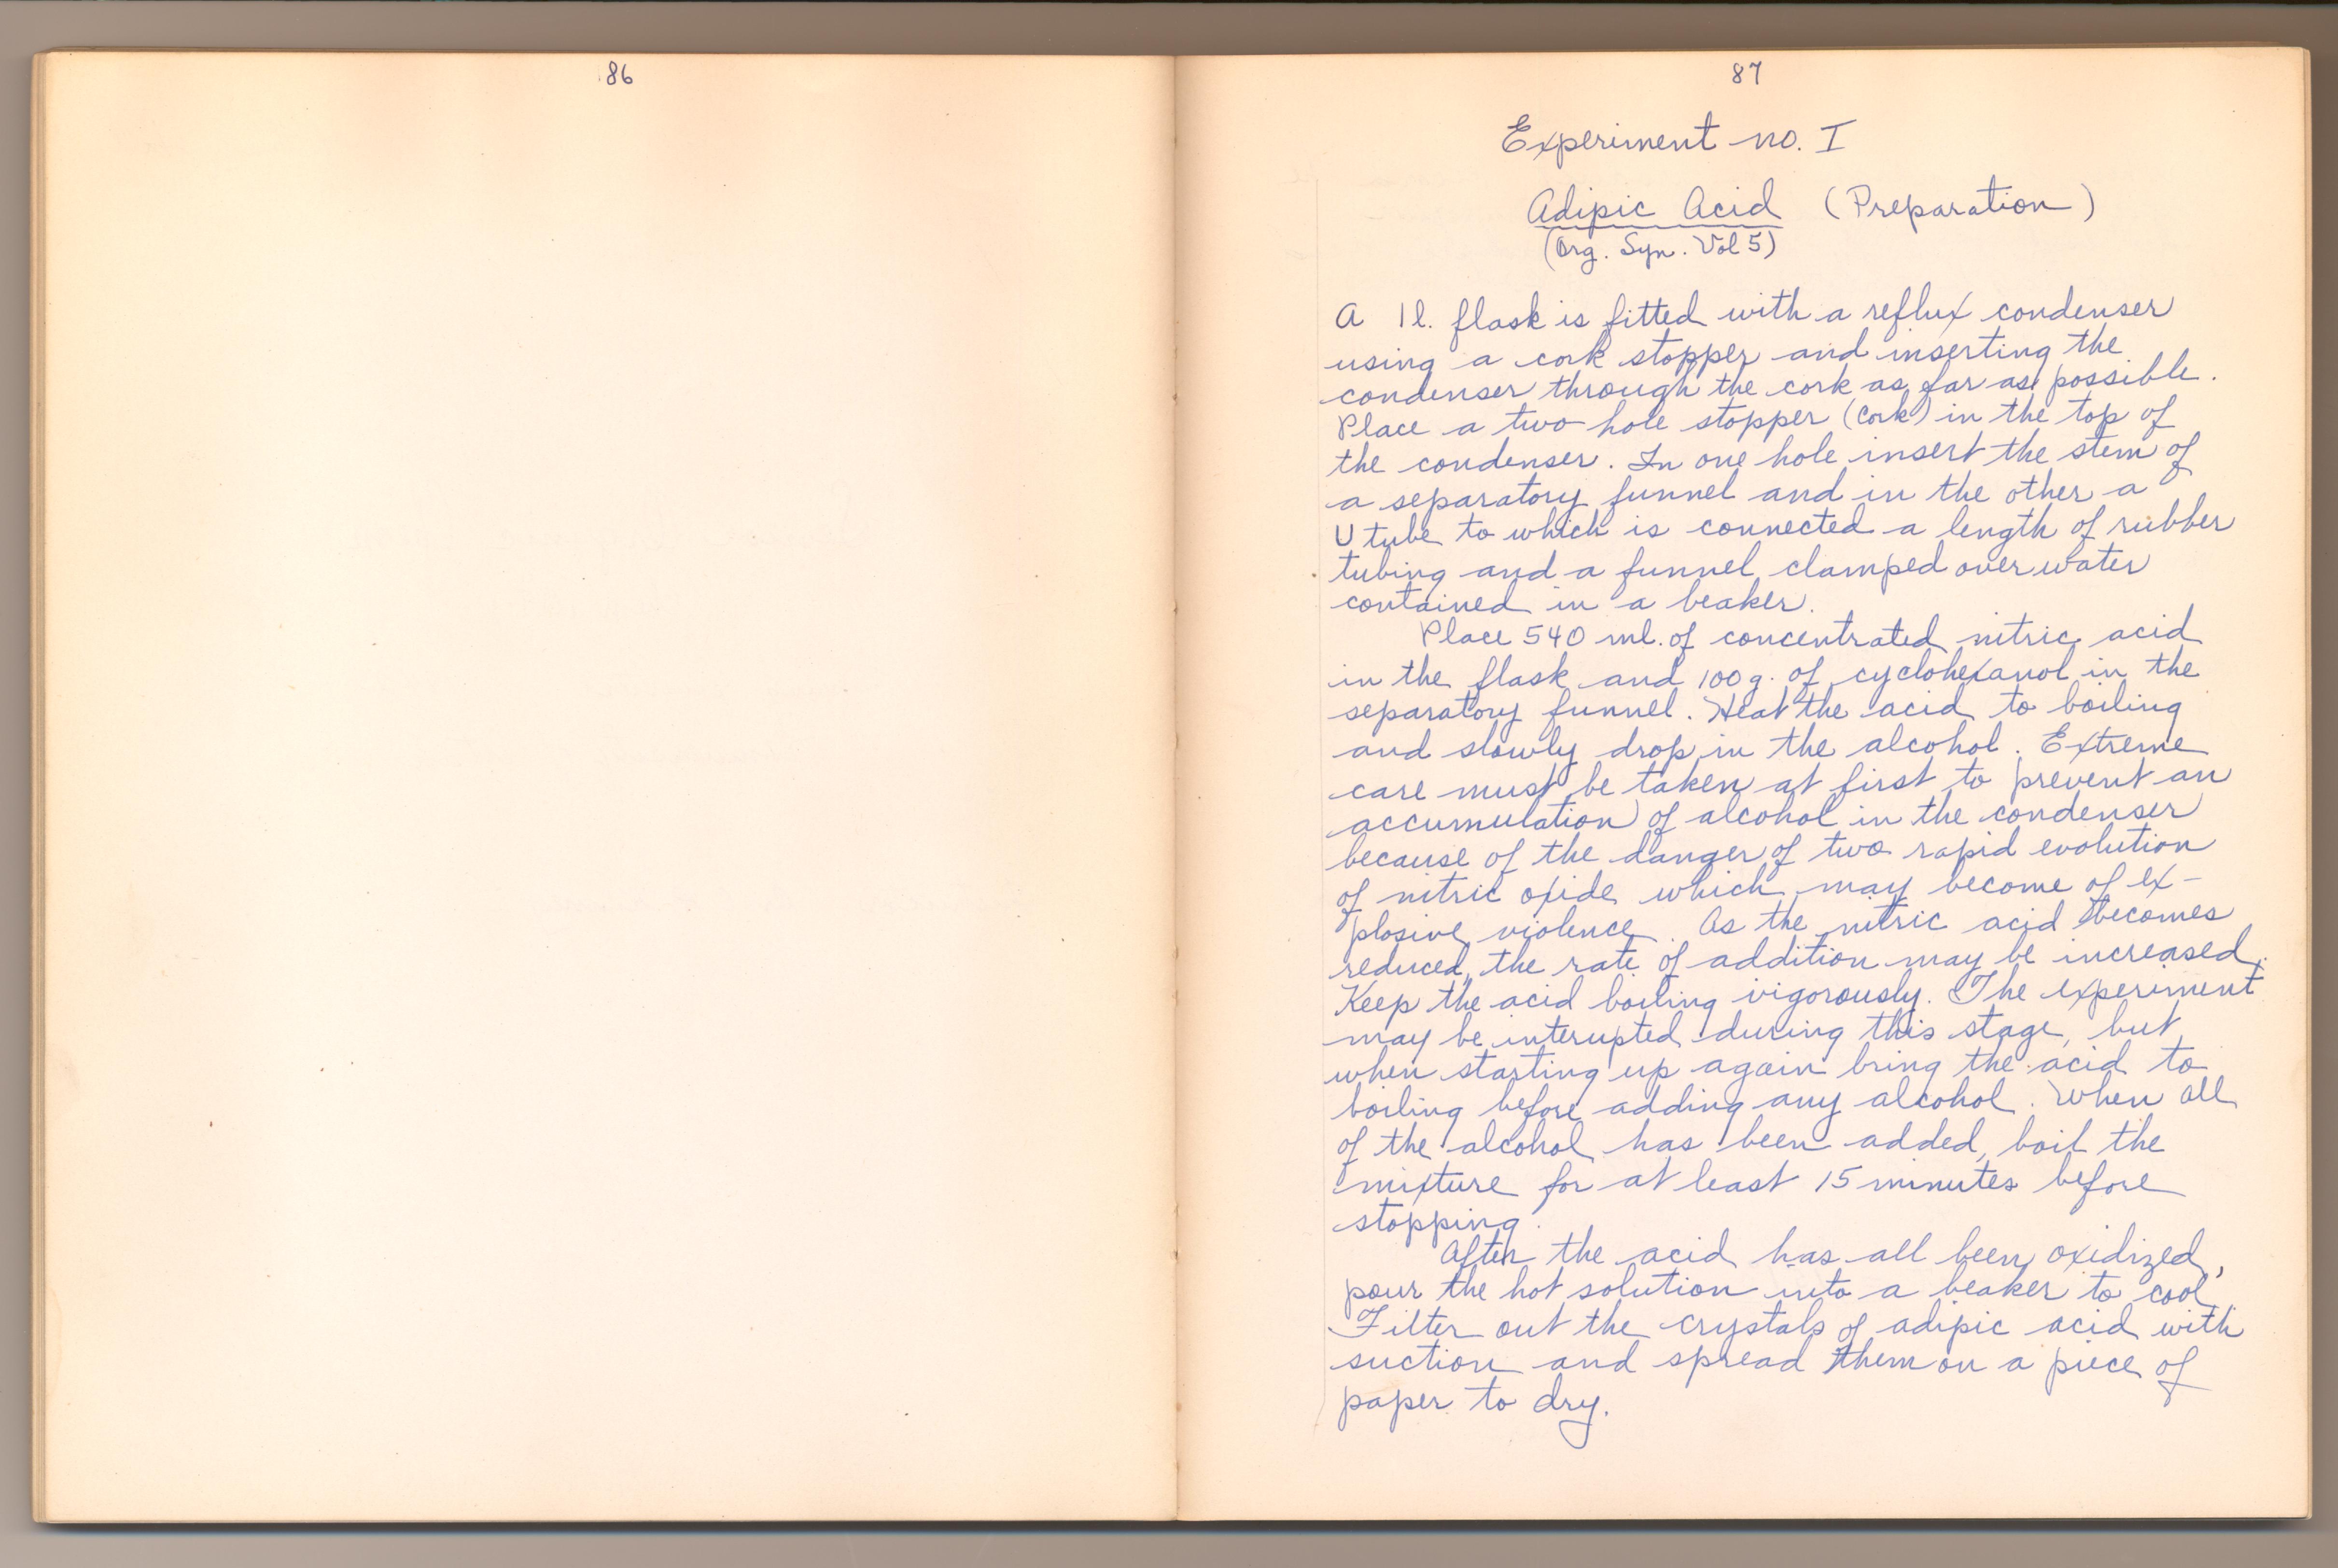 86
87
Experiment no. I
Adipic Acid (Preparation)
(Org. Syn. Vol 5)
A 1 l. flask is fitted with a reflux condenser
using a cork stopper and inserting the
condenser through the cork as far as possible.
Place a two hole stopper (cork) in the top of
the condenser. In one hole insert the stem of
a separatory funnel and in the other a
U tube to which is connected a length of rubber
tubing and a funnel clamped over water
contained in a beaker.
Place 540 ml. of concentrated nitric acid
in the flask and 100 g. of cyclohexanol in the
separatory funnel. Heat the acid to boiling
and slowly drop in the alcohol. Extreme
care must be taken at first to prevent an
accumulation of alcohol in the condenser
because of the danger of two rapid evolution
of nitric oxide which may become of ex-
plosive violence. As the nitric acid becomes
reduced, the rate of addition may be increased.
Keep the acid boiling vigorously. The experiment
may be interupted during this stage, but
when starting up again bring the acid to
boiling before adding any alcohol. When all
of the alcohol has been added, boil the
mixture for at least 15 minutes before
stopping.
After the acid has all been oxidized,
pour the hot solution into a beaker to cool.
Filter out the crystals of adipic acid with
suction and spread them on a piece of
paper to dry.